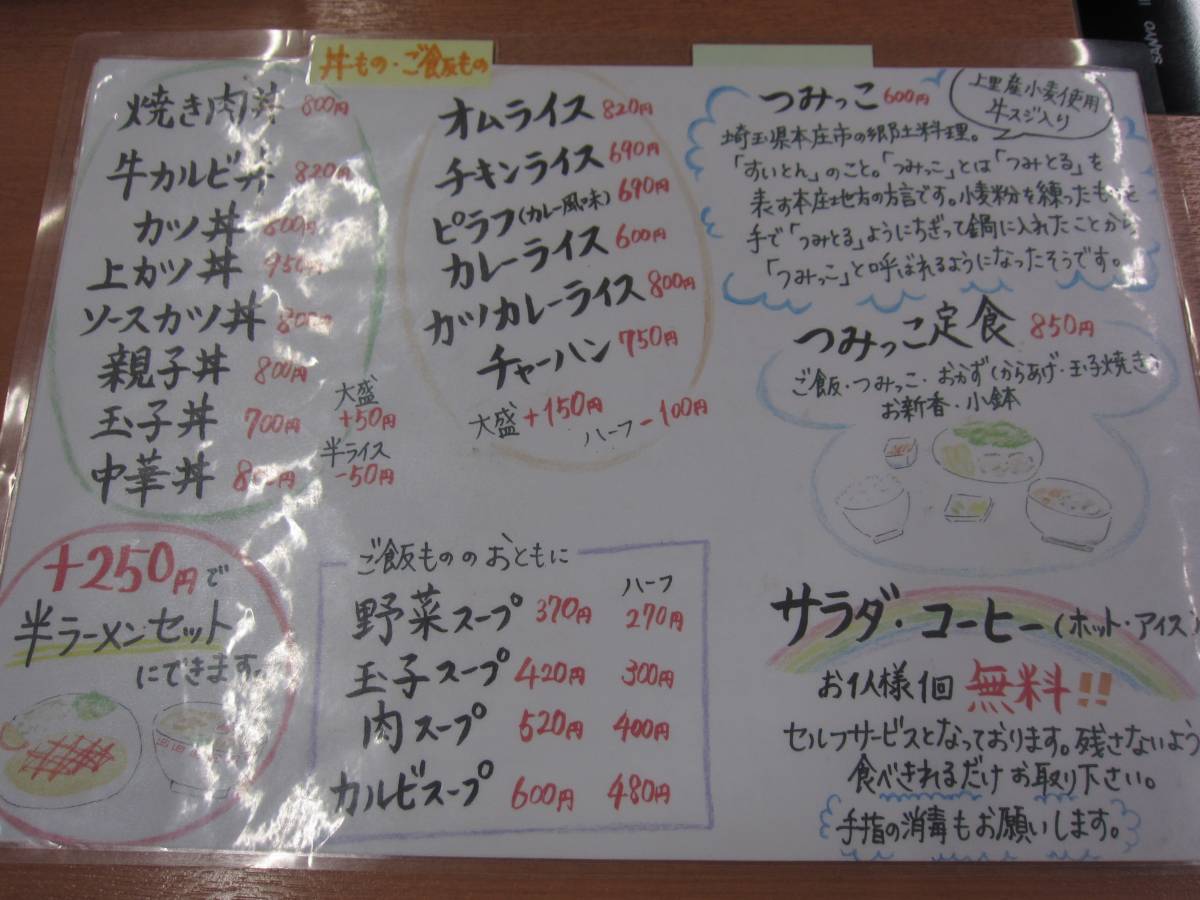 丼もの・ご飯もの
焼き肉丼 800円
牛カルビ丼 820円
カツ丼 800円
上カツ丼 950円
ソースカツ丼 800円
親子丼 800円
玉子丼 700円
中華丼 800円
大盛
+50円
半ライス
-50円
+250円で
半ラーメンセット
にできます。
オムライス 820円
チキンライス 690円
ピラフ(カレー風味) 690円
カレーライス 600円
カツカレーライス 800円
チャーハン 750円
大盛 +150円
ハーフ -100円
ご飯もののおともに
ハーフ
野菜スープ 370円 270円
玉子スープ 420円 300円
肉スープ 520円 400円
カルビスープ 600円 480円
つみっこ 600円
上里産小麦使用
牛スジ入り
埼玉県本庄市の郷土料理。
「すいとん」のこと。「つみっこ」とは「つみとる」を
表す本庄地方の方言です。小麦粉を練ったものを
手で「つみとる」ようにちぎって鍋に入れたことから
「つみっこ」と呼ばれるようになったそうです。
つみっこ定食 850円
ご飯・つみっこ・おかず(からあげ・玉子焼き)
お新香・小鉢
サラダ・コーヒー(ホット・アイス)
お1人様1回 無料!!
セルフサービスとなっております。残さないよう
食べきれるだけお取り下さい。
手指の消毒もお願いします。
SANYO